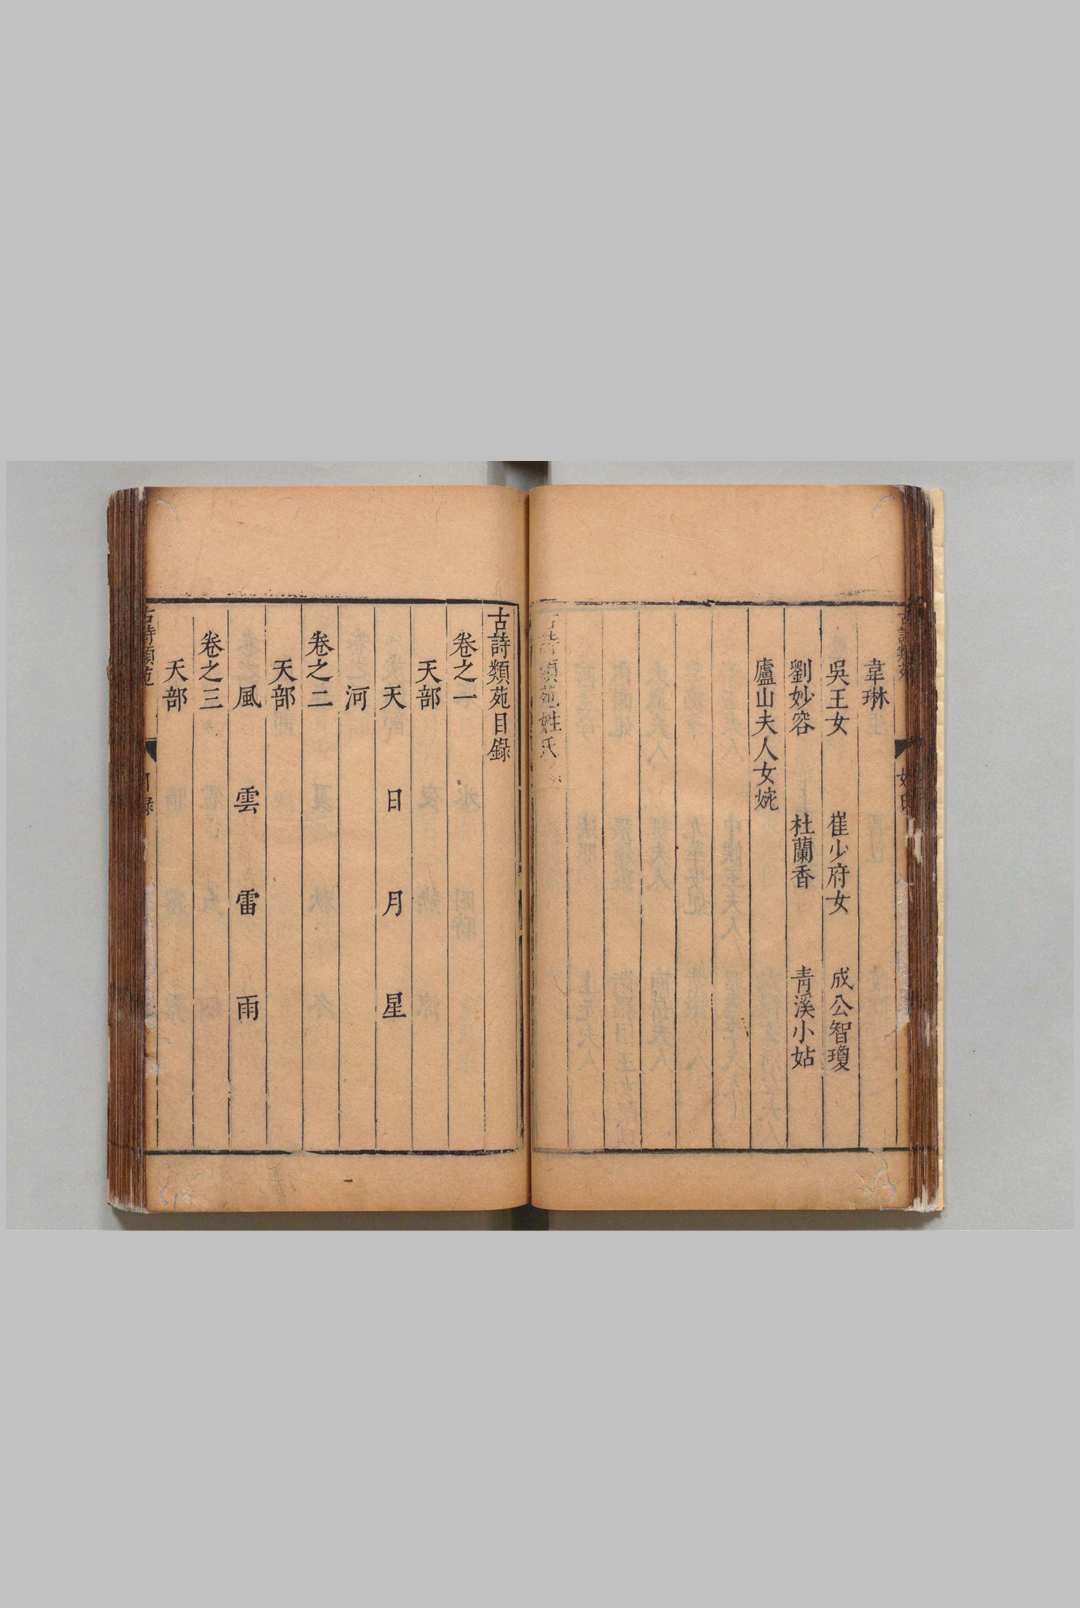 韋琳
吳王女 崔少府女 成公智瓊
劉妙容 杜蘭香 青溪小姑
廬山夫人女婉
古詩類苑姓氏
古詩類苑目錄
卷之一
天部
天 日 月 星
河
卷之二
天部
風 雲 雷 雨
卷之三
天部
古詩類苑 目錄